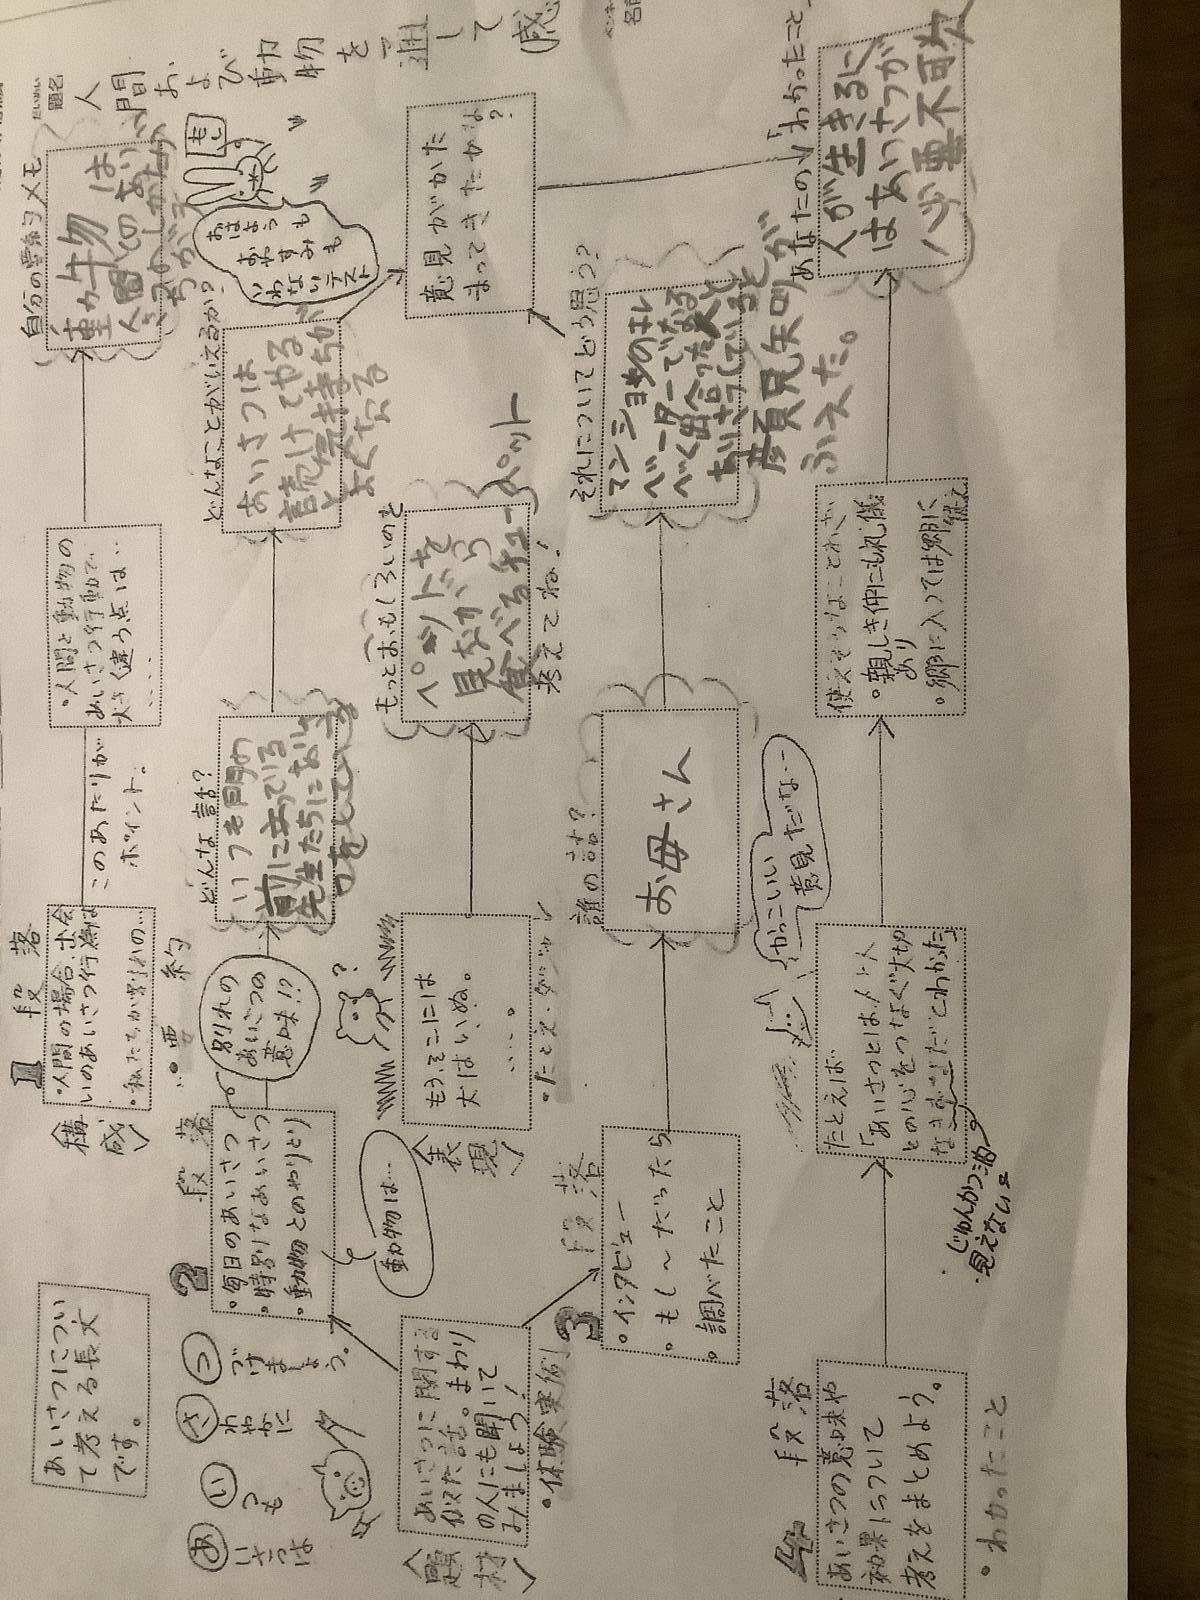 あいさつについ
て考える長文
です。
あ
いさつは
い
つも
さ
わやかに
つ
づけましょう。
〈構成〉
1 段落
・人間の場合、出会
いのあいさつ行為は
・私たちが別れの…
・要約
このあたりが
ポイント。
・人間と動物の
あいさつ行動で
大きく違う点は…
....
自分の要約メモ
動物は
人間のあり
2 段落
・毎日のあいさつ
・特別なあいさつ
・動物とのやりとり
別れの
あいさつの
意味!?
動物は…
どんな話?
いつも門の
前に立っている
先生たちにあいさ
つをしている
どんなことがいえるか?
あいさつは
続けてやる
と気持ちが
よくなる
もし。
おはようも
おやすみも
いわないテスト
〈題材〉
あいさつに関する
似た話。まわり
の人にも聞いて
みましょう!
・体験実例
〈表現〉
もう、そこには
犬はいぬ。
....。
・たとえ・ダジャレ
?
もっとおもしろいのを
ペットを
見ながら
食べるチューブペット
考えてね!
意見がかた
まってきたかな
?
3 段落
・インタビュー
・もし〜だったら
・調べたこと
誰の話?
お母さん
それについてどう思う?
マンションのエレ
ベーターでなる
べく出会った人と
あいさつしていると
顔見知りが
ふえた。
4 段落
あいさつの意味や
効果について
考えをまとめよう。
・わかったこと
たとえば
「あいさつとは、人と人
との心をつなぐ大切
なきずなだ」とわかった
じゅんかつ油
・見えない
かっこいい
意見だな…
使えそうなことわざ
・親しき仲にも礼儀
あり
・郷に入っては郷に従え
あなたの「わかったこと」
人が生きるに
はあいさつが
必要不可欠
題名
人間および動物を通して感
名前